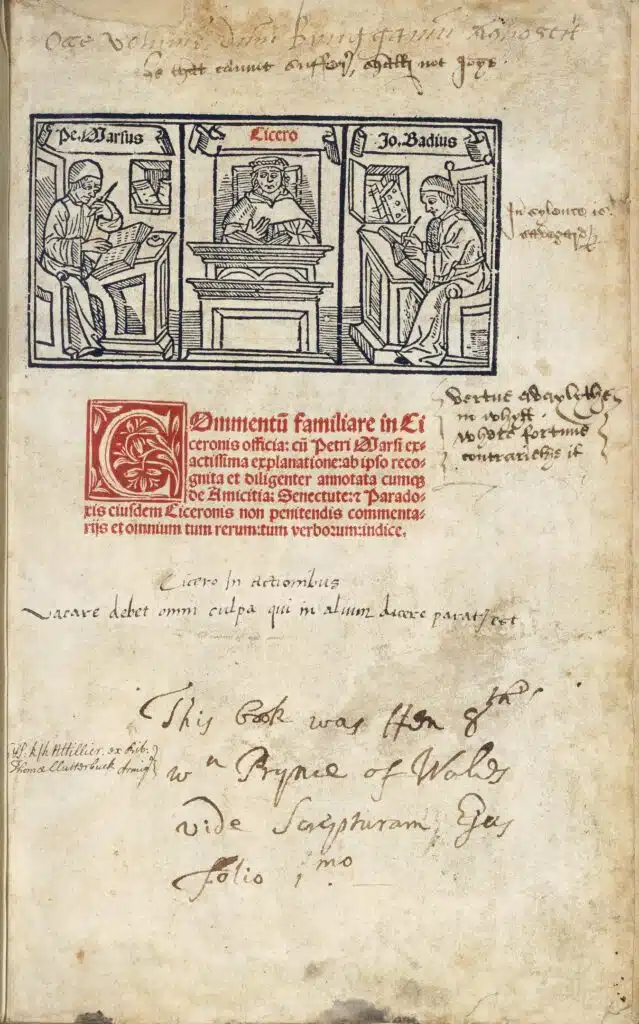 he that cannot suffer, shall not joye
Pe. Marsus
Cicero
Jo. Badius
In sylence is
Commentũ familiare in Ci
ceronis officia: cũ Petri Marsi ex-
actissima explanatione: ab ipso reco-
gnita et diligenter annotata cumqꝫ
de Amicitia: Senectute: ⁊ Parado-
xis eiusdem Ciceronis non penitendis commenta-
rijs et omnium tum rerum: tum verborum: indice.
vertue
in
whose fortune
contrarieths it
Cicero In actionibus
Vacare debet omni culpa qui in alium dicere
This book was Hen 8th
wn Prynce of Wales
vide Scripturam Ejus
folio 1mo